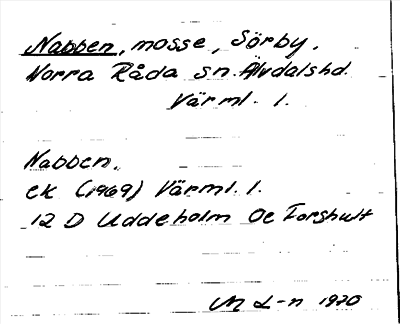 Nabben, mosse, Sörby,
Norra Råda sn. Älvdalshd.
Värml. l.
Nabben.
ek (1969) Värml. l.
12 D Uddeholm 0e Forshult
M L-n 1970